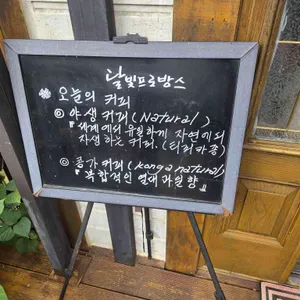 달빛프로방스
※ 오늘의 커피
◎ 야생커피(Natural)
"세계에서 유일하게 자연에서
자생하는 커피. (티피카종)
◎ 콩가커피(Konga natural)
"복합적인 열대과일향"